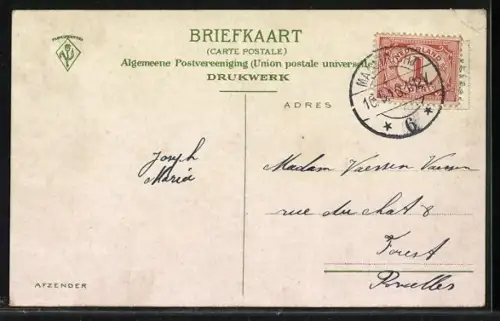 BRIEFKAART
(CARTE POSTALE)
Algemeene Postvereeniging (Union postale universel
DRUKWERK
ADRES
1
6
Joseph
Maria
Madam Vaessen Vaessen
rue du chat 8
Forest
Bruelles
AFZENDER